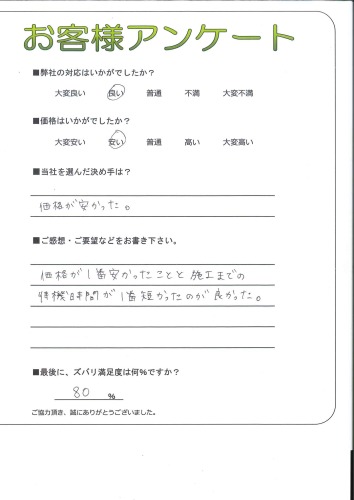 お客様アンケート
■弊社の対応はいかがでしたか？
大変良い 良い 普通 不満 大変不満
■価格はいかがでしたか？
大変安い 安い 普通 高い 大変高い
■当社を選んだ決め手は？
価格が安かった。
■ご感想・ご要望などをお書き下さい。
価格が1番安かったことと施工までの
待機時間が1番短かったのが良かった。
■最後に、ズバリ満足度は何%ですか？
80 %
ご協力頂き、誠にありがとうございました。